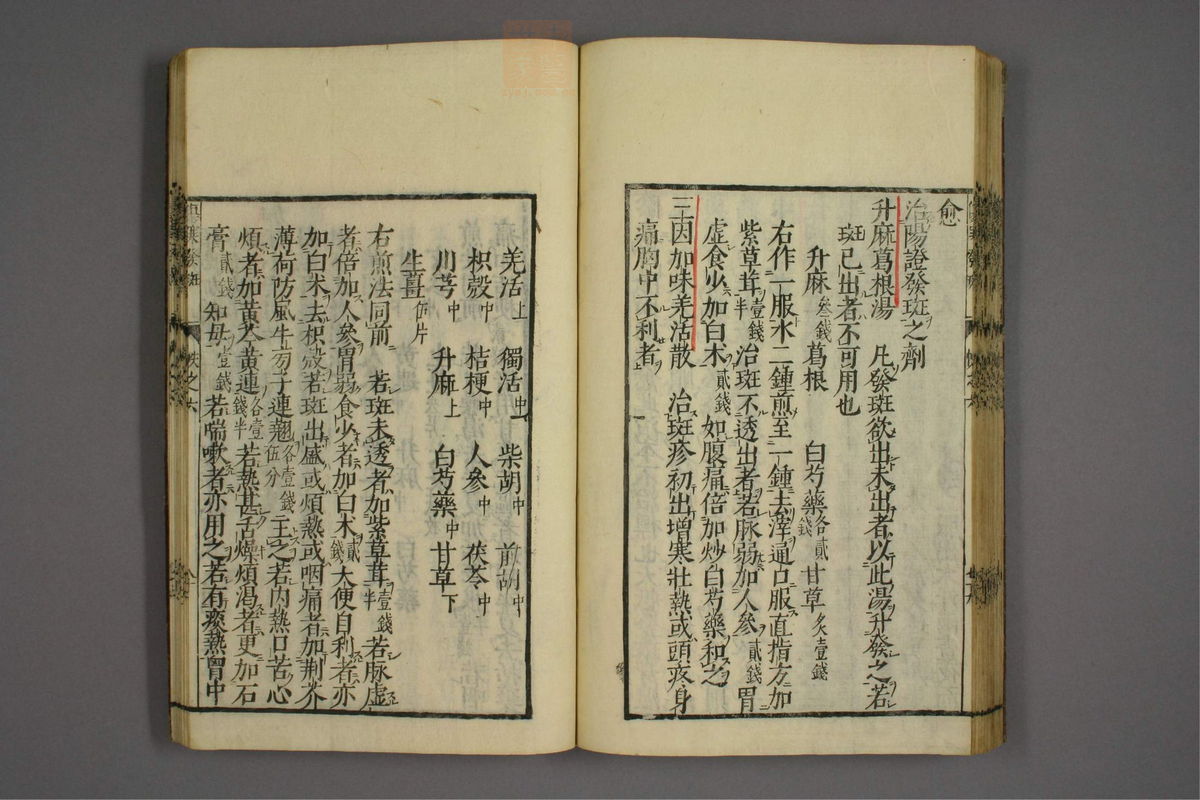 愈
治陽證發斑之劑
升麻葛根湯 凡發斑欲出未出者以此湯升發之若
斑已出者不可用也
升麻叁錢 葛根 白芍藥各貳錢 甘草炙壹錢
右作一服水二鍾煎至一鍾去滓通口服直指方加
紫草茸壹錢半 治斑不透出者若脉弱加人參貳錢胃
虛食少加白朮貳錢 如腹痛倍加炒白芍藥和之
三因加味羌活散 治斑疹初出增寒壯熱或頭疼身
痛胸中不利者
羌活上 獨活中 柴胡中 前胡中
枳殼中 桔梗中 人參中 茯苓中
川芎中 升麻上 白芍藥中 甘草下
生薑伍片
右煎法同前 若斑未透者加紫草茸壹錢半 若脉虛
者倍加人參胃弱食少者加白朮貳錢 大便自利者亦
加白朮去枳殼若斑出盛或煩熱或咽痛者加荆芥
薄荷防風牛蒡子連翹各壹錢伍分 主之若內熱口苦心
煩者加黃芩黃連各壹錢半 若熱甚舌燥煩渴者更加石
膏貳錢 知母壹錢 若喘嗽者亦用之若有痰熱胷中
帙之六